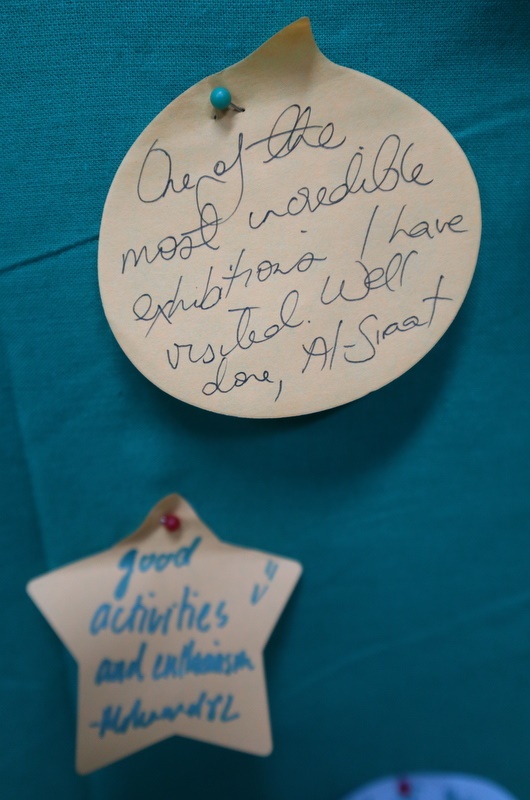 One of the
most incredible
exhibitions I have
visited. Well
done, Al-Siraat
good
activities
and enthusiasm